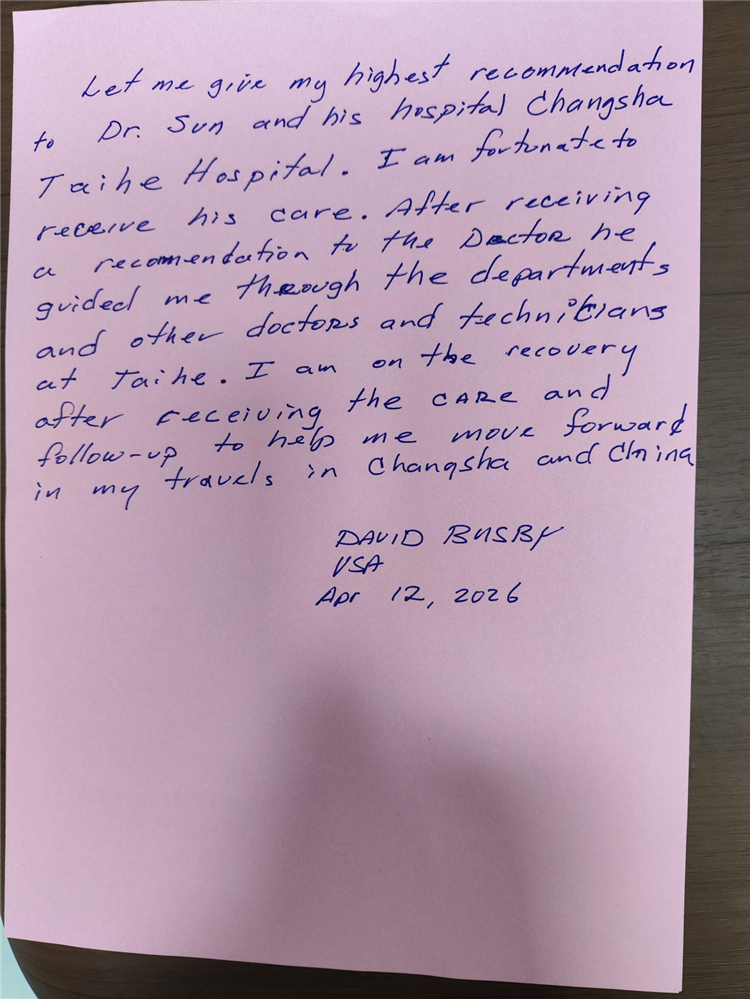 Let me give my highest recommendation
to Dr. Sun and his hospital Changsha
Taihe Hospital. I am fortunate to
receive his care. After receiving
a recomendation to the Doctor he
guided me through the departments
and other doctors and technicians
at Taihe. I am on the recovery
after receiving the CARE and
follow-up to help me move forward
in my travels in Changsha and China
DAVID BUSBY
USA
Apr 12, 2026